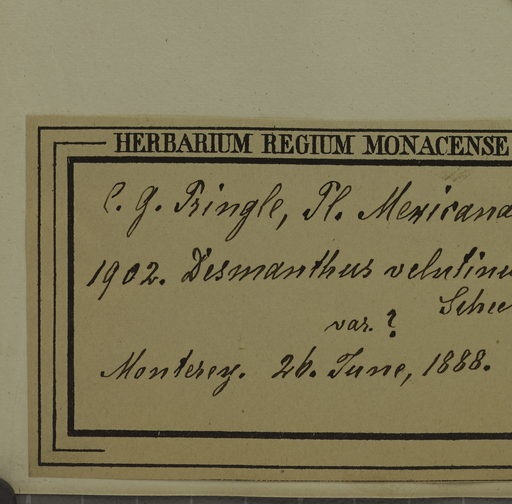 HERBARIUM REGIUM MONACENSE
C. G. Pringle, Pl. Mexicana
1902. Desmanthus velutinu
Schee
var. ?
Monterey. 26. June, 1888.